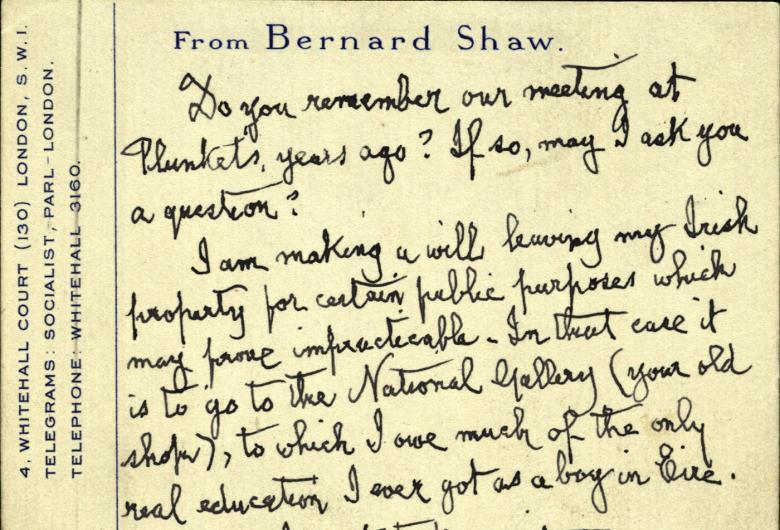 4, WHITEHALL COURT (130) LONDON, S.W.1.
TELEGRAMS: SOCIALIST, PARL-LONDON.
TELEPHONE: WHITEHALL 3160.
From Bernard Shaw.
Do you remember our meeting at
Plunkets, years ago? If so, may I ask you
a question?
I am making a will leaving my Irish
property for certain public purposes which
may prove impracticable. In that case it
is to go to the National Gallery (your old
shop), to which I owe much of the only
real education I ever got as a boy in Eire.